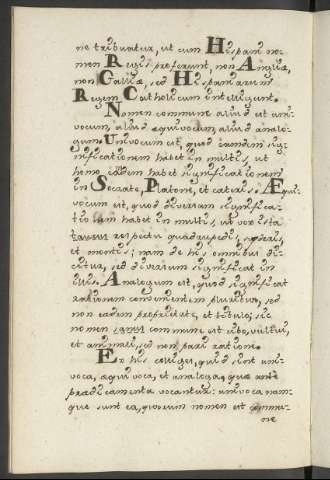 ne tribuatur, ut cum Hispani no-
men Regis proferunt, non Angliæ,
non Galliæ, sed Hispaniarum
Regem Catholicum intelligunt.
Nomen commune aliud est uni-
vocum, aliud æquivocum, aliud analo-
gum. Univocum est, quod eamdem sig-
nificationem habet in multis, ut
homo eadem habet significationem
in Socrate, Platone, et cæteris. Æqui-
vocum est, quod diversam significa-
tionem habet in multis, ut vox ista
taurus respectu quadrupedis, syderis,
et montis; nam de his omnibus di-
citur, sed diversum significat in
illis. Analogum est, quod significat
rationem convenientem pluribus, sed
non eadem proprietate, et titulo; sic
nomen sanus commune est cibo, vultui,
et animali, sed non pari ratione.
Ex his colliges, quid sint uni-
voca, æquivoca, et analoga, quæ ante
prædicamenta vocantur: univoca nam-
que sunt ea, quorum nomen est commu-
ne